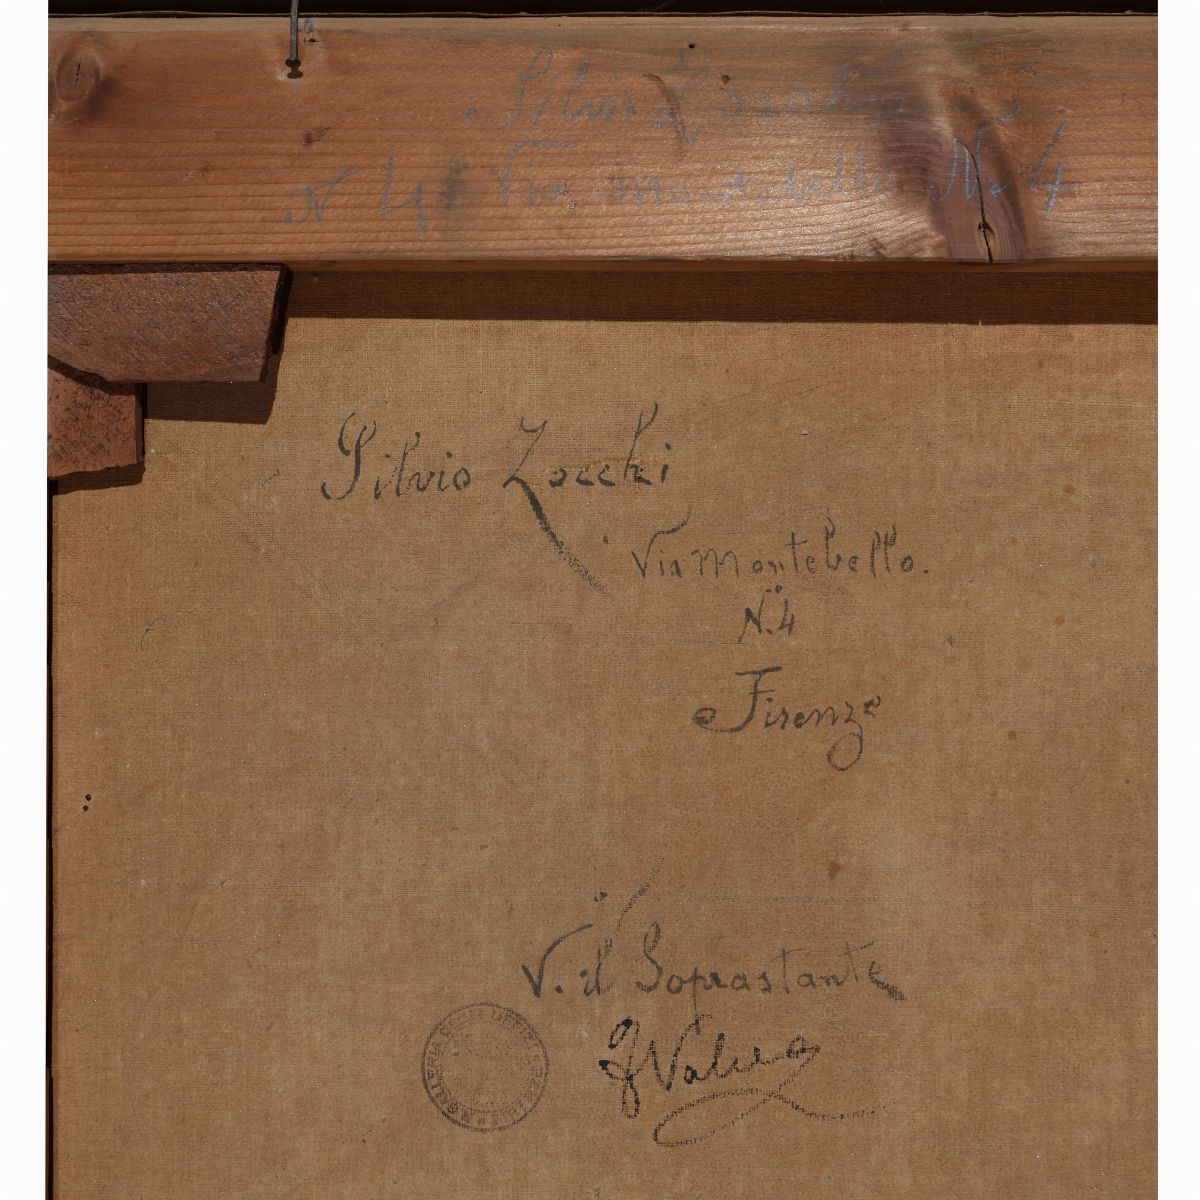 Silvio Zocchi
N 4 Via Montebello N. 4
Silvio Zocchi
Via Montebello.
N. 4
Firenze
V. il Soprastante